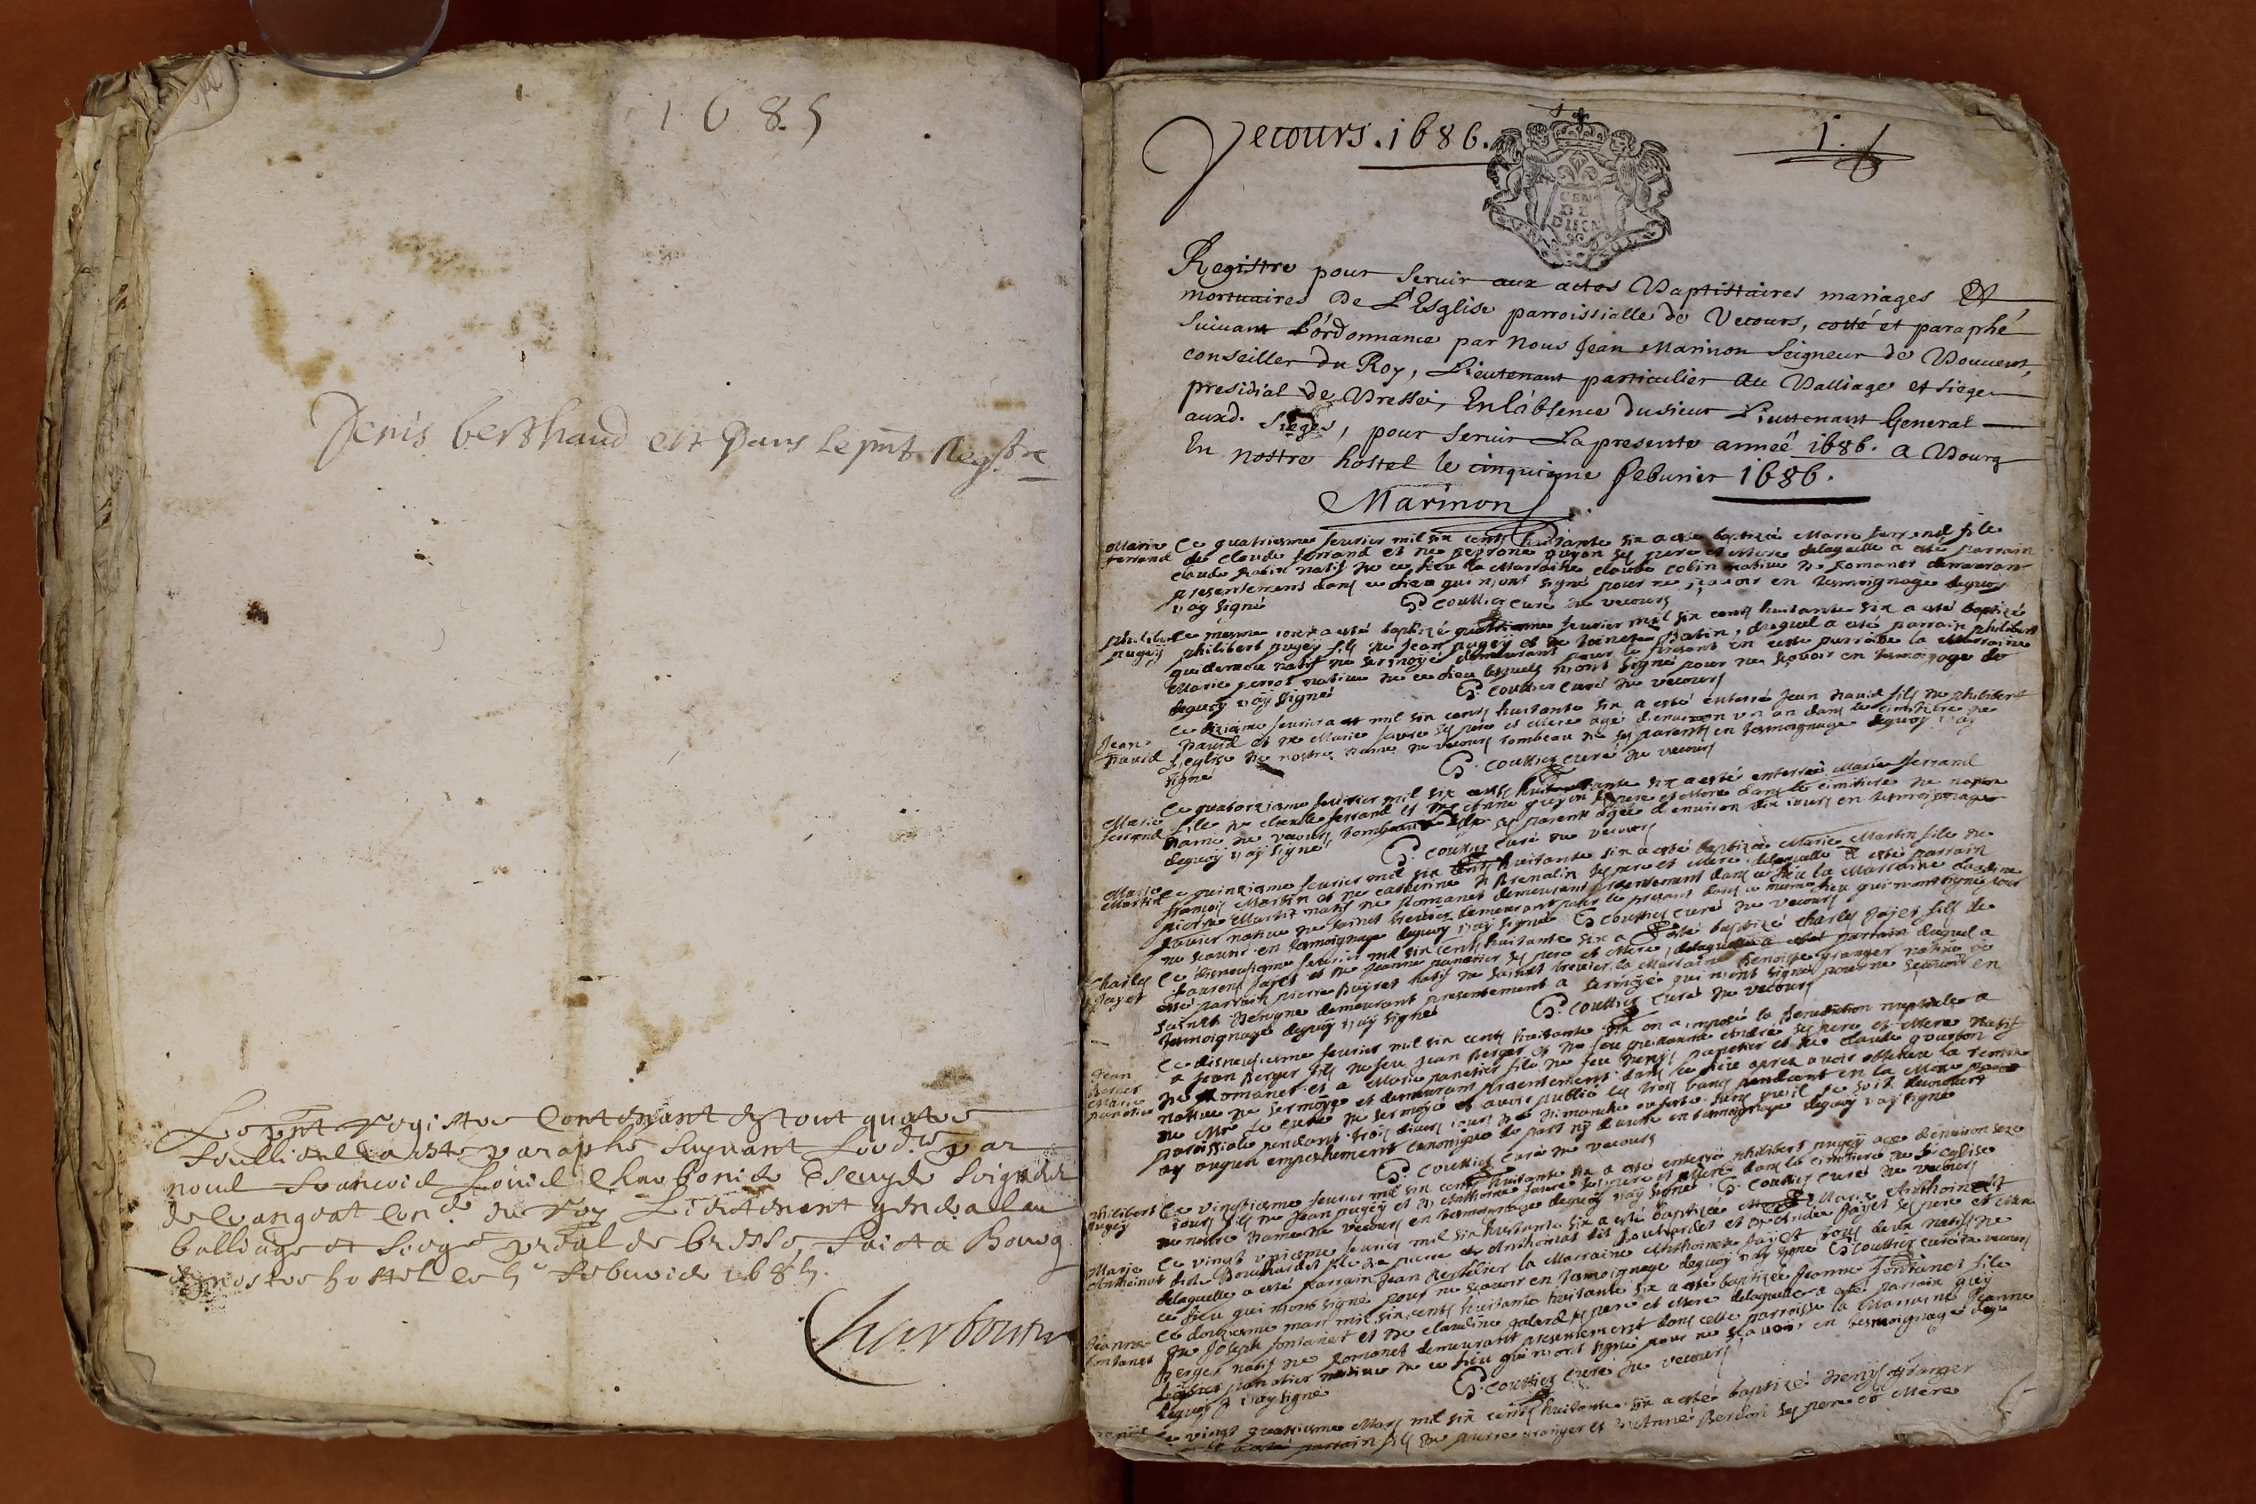 1685
Denis berthaud est dans le pnt Regtre
Le pnt registre contenant en tout quatre
feuillietz a esté paraphé suyvant l'ord.ce par
nous francois Louis Charbonie Escuyer Seigneur
de con.er du Roy Lieutenant general au
balliage et siege pr.al de bresse, faict a Bourg
en nostre hostel le 5e febvrier 1685.
Charbonnier
Vecours . 1686.
1.
Registre pour servir aux actes Baptistaires mariages &
mortuaires de L'Esglise parroissialle de Vecours, cotté et paraphé
suivant L'ordonnance par nous Jean Marinon Seigneur de Bouvent,
conseiller du Roy, Lieutenant particulier au Balliage et siege
presidial de Bresse, En l'absence du sieur Lieutenant General
auxd. sieges, pour servir La presente année 1686. a Bourg
En nostre hostel le cinquieme febvrier 1686.
Marinon
Marie Ce quatriesme fevrier mil six cents huitante six a esté baptizée Marie ferrand file
ferrand de claude ferrand et de peprone guyon ses pere et Mere delaquelle a esté parrain
claude Rabin natif de ce lieu la Marraine claude colin native de Romanet demeurant
presentement dans ce lieu qui n'ont signé pour ne scavoir en tesmoignage dequoy
i'ay signé P. couttier curé de vecours
Philibert Ce mesme iour a esté baptizé quatriesme fevrier mil six cents huitante six a esté baptizé
pugey philibert pugey fils de Jean pugey et de Rabin, duquel a esté parrain philibert
natif de sermoyé demeurant pour le present en ceste parroisse la Marraine
Marie perrot native de ce lieu lesquels n'ont signé pour ne scavoir en tesmoignage de
dequoy i'ay signé P. couttier curé de vecours
Ce fevrier mil six cents huitante six a esté enterré Jean david fils de philibert
Jean david et de Marie favre ses pere et Mere agé d'environ un an dans le cimitiere de
david l'eglise de nostre dame de vecours tombeau de ses parents en tesmoignage dequoy i'ay
signé P. couttier curé de vecours
Ce quatorziesme fevrier mil six cents huitante six a esté enterrée Marie ferrand
Marie file de claude ferrand et de guyon ses pere et Mere dans le cimitiere de nostre
ferrand dame de vecours tombeau de ses parents agée d'environ dix iours en tesmoignage
dequoy i'ay signé P. couttier curé de vecours
Marie Ce quinziesme fevrier mil six cents huitante six a esté baptizée Marie Martin file de
Martin francois Martin et de catherine Brenalin ses pere et Mere delaquelle a esté parrain
pierre Martin natif de Romanet demeurant presentement dans ce lieu la Marraine claudine
native de sainct trevier demeurant pour le present dans ce mesme lieu qui n'ont signé pour
ne scavoir en tesmoignage dequoy i'ay signé P. couttier curé de vecours
Charles Ce disneufiesme fevrier mil six cents huitante six a esté baptizé charles Jayet fils de
Jayet Laurent Jayet et de Jeanne panetier ses pere et Mere duquel a
esté parrain pierre Buyret natif de sainct trevier la Marraine Benoite granger native de
sainct Benigne demeurant presentement a sermoyé qui n'ont signé pour ne scavoir en
tesmoignage dequoy i'ay signé P. couttier curé de vecours
Ce disneufiesme fevrier mil six cents huitante six on a imposé la Benediction nuptiale a
Jean a Jean Berger fils de feu Jean Berger et de feu André ses pere et Mere natif
Berger de Romanet et a Marie panetier file de feu denys panetier et de claude gourbon
Marie native de sermoyé et demeurant presentement dans ce lieu apres avoir obtenu la remise
panetier de Mr le curé de sermoyé et avoir publié les trois bans pendant en la Messe
paroissiale pendant trois divers iours de dimanche ou feste sans qu'il se soit decouvert
ny augun empeschement canonique de part ny d'autre en tesmoignage dequoy i'ay signé
P. couttier curé de vecours
philibert Ce vingtiesme fevrier mil six cents huitante six a esté enterré philibert pugey agé d'environ seze
pugey iours fils de Jean pugey et d'Anthoine favre ses pere et Mere dans le cimitiere de l'eglise
de nostre Dame de vecours en tesmoignage dequoy i'ay signé P. couttier curé de vecours
Marie Ce vingt uniesme fevrier mil six huitante six a esté baptizée Marie Anthoinat
Anthoinat dite Bouchardet file de pierre Anthoinat dit Bouchardet et de claudine Jayet ses pere et Mere
delaquelle a esté parrain Jean Restelier la Marraine Anthoinete Jayet tous deux natifs de
ce lieu qui n'ont signé pour ne scavoir en tesmoignage dequoy i'ay signé P. couttier curé de vecours
Ce douziesme mars mil six cents huitante six a esté baptizée Jeanne fontanet file
Jeanne de Joseph fontanet et de claudine galand ses pere et Mere delaquelle a esté parrain guy
fontanet Berger natif de Romanet demeurant presentement dans cette parroisse la Marraine Jeanne
panetier native de ce lieu qui n'ont signé pour ne scavoir en tesmoignage
dequoy i'ay signé P. couttier curé de vecours
Ce vingt quatriesme Mars mil six cents huitante six a esté baptizé denys granger
fils de pierre granger et d'Anne Berdon ses pere et Mere